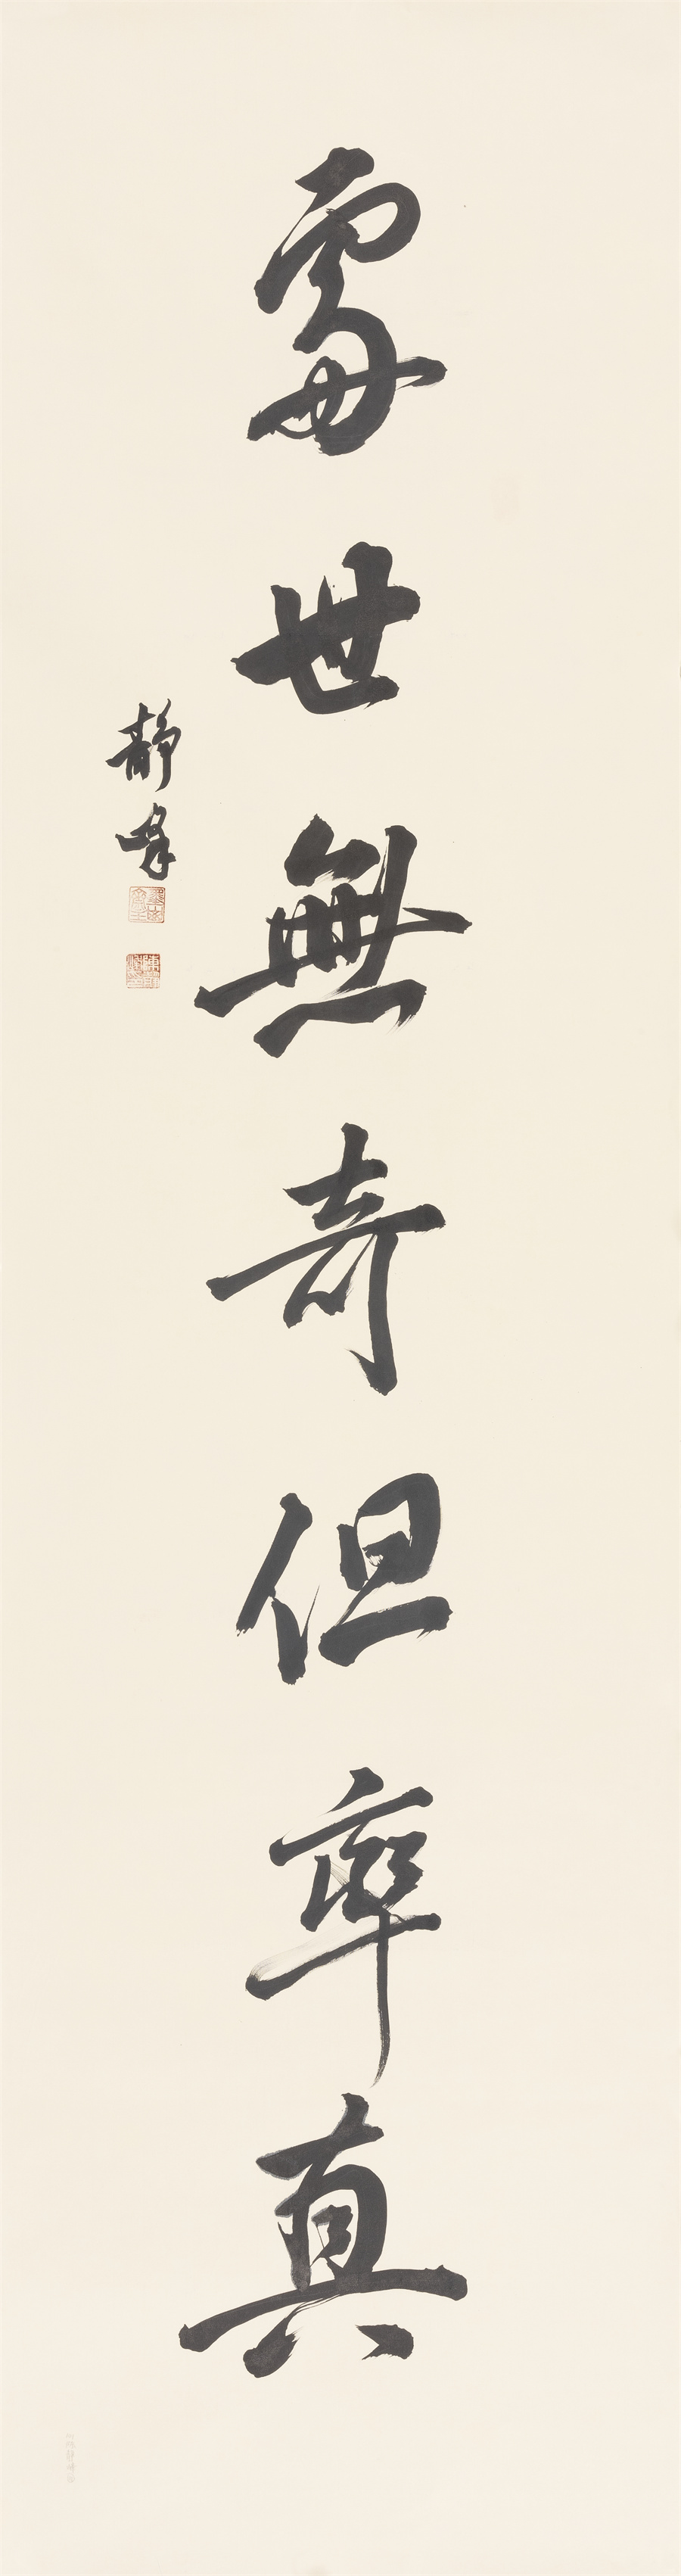 處世無奇但率真
靜峯